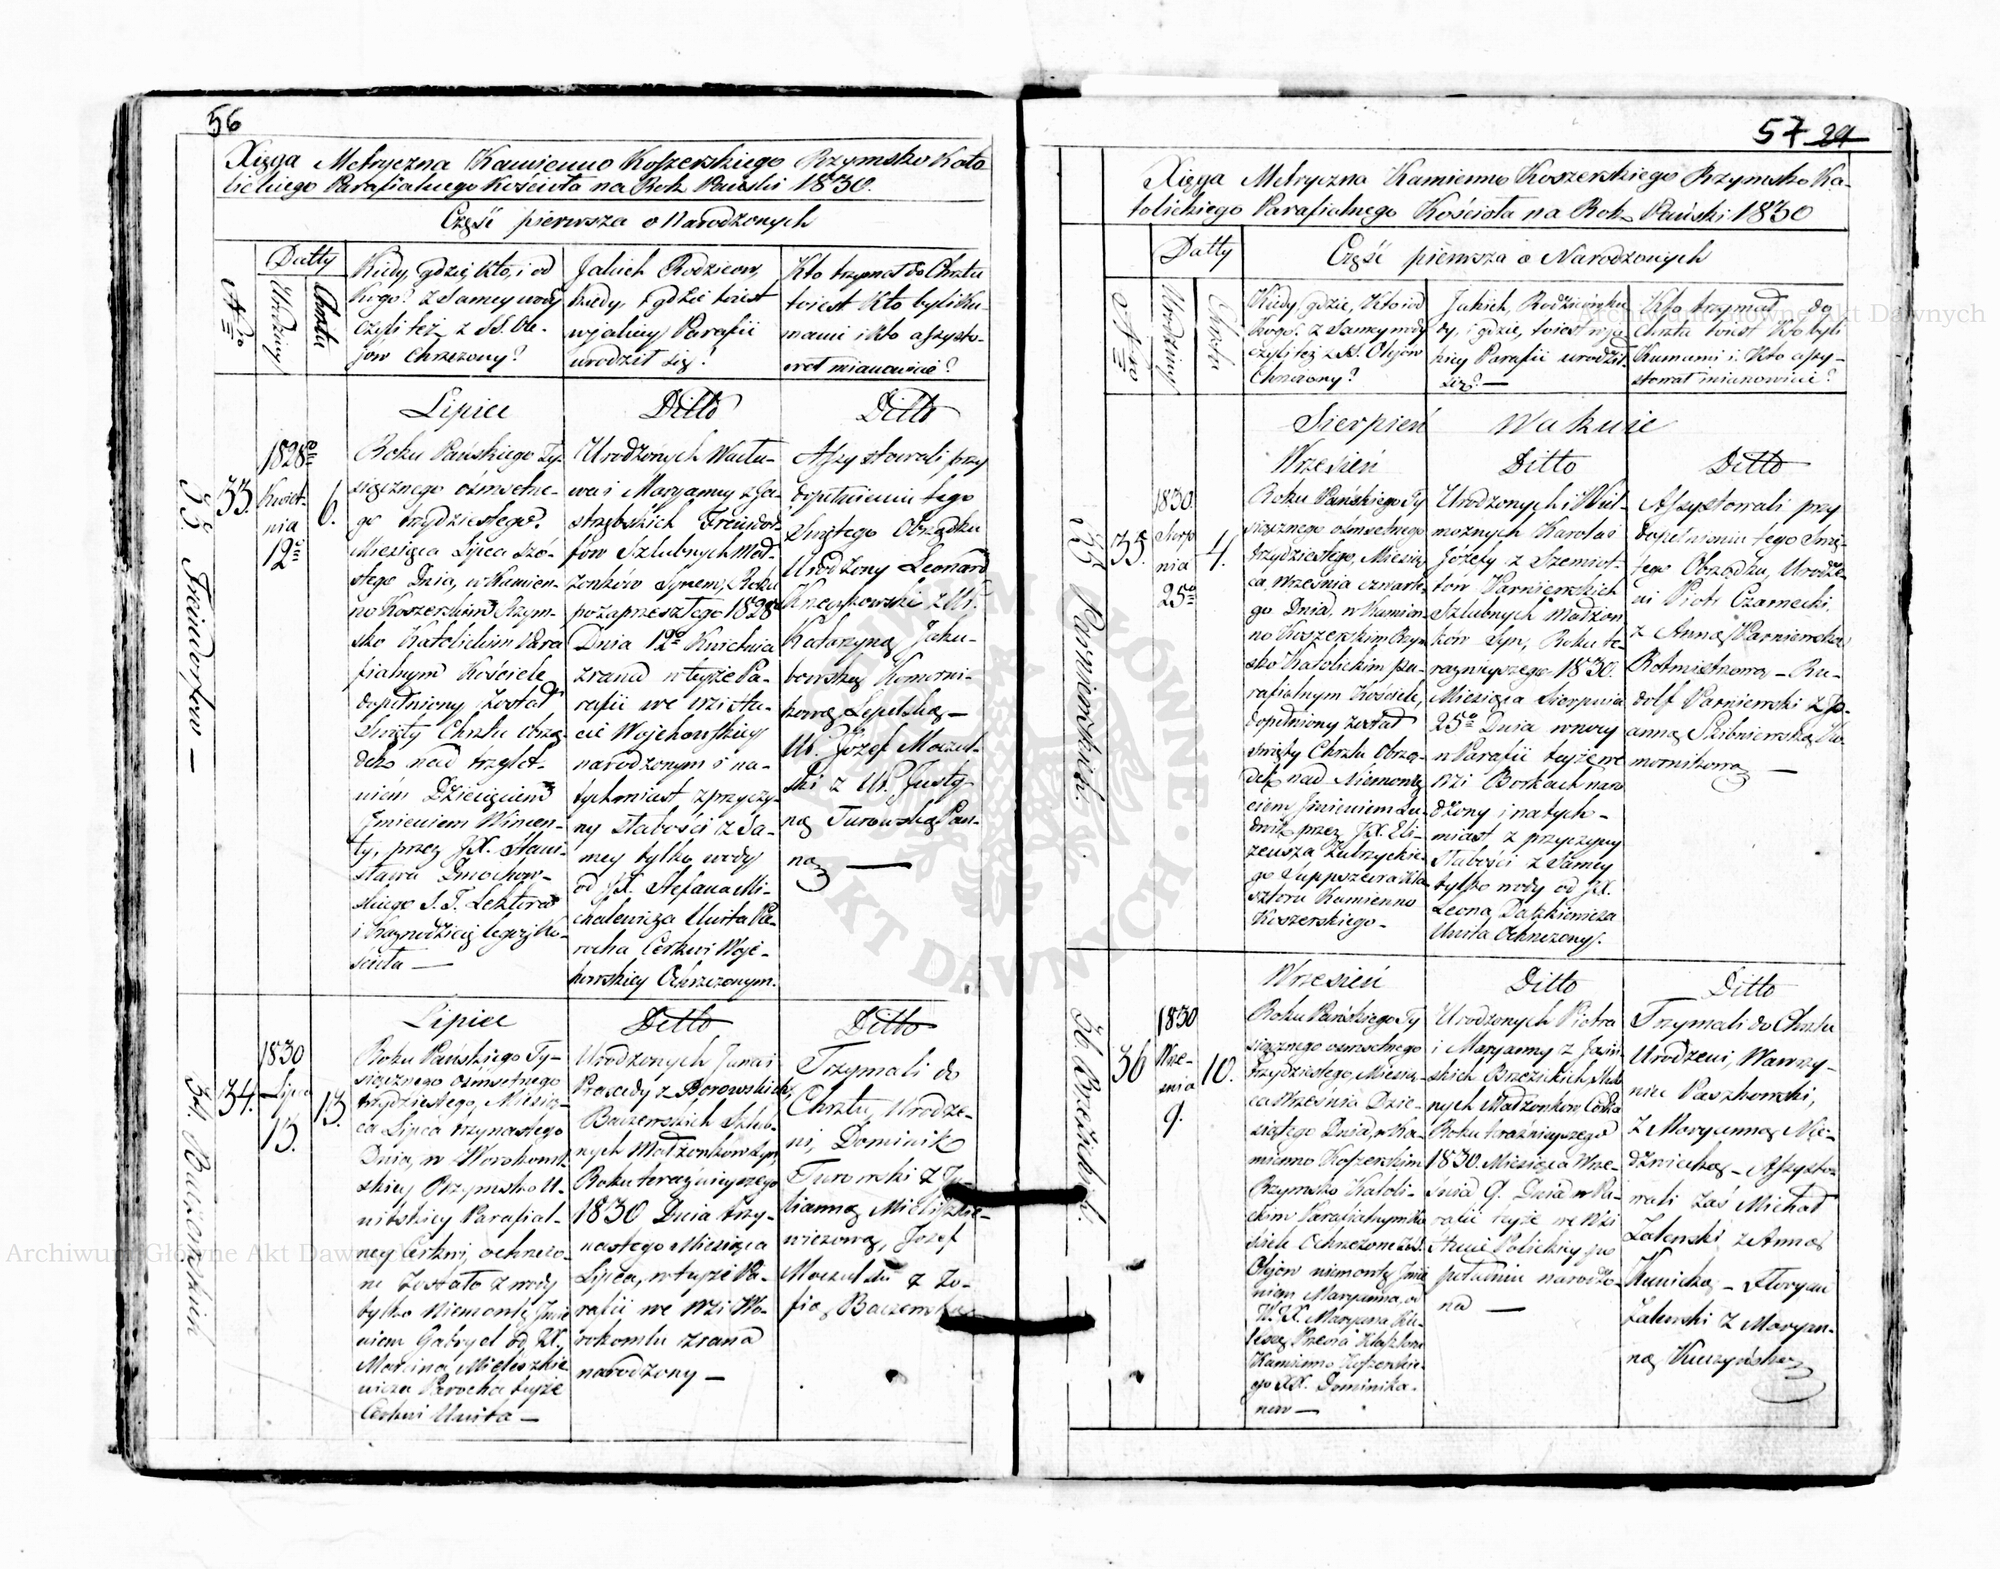 56
Xięga Metryczna Kamienno Koszerskiego Rzymsko Kato
lickiego Parafialnego Kościoła na Rok Pański 1830.
Część pierwsza o Narodzonych
Nro
Datty
Urodziny
Chrztu
Kiedy, gdzie, kto, i od
kogo? z Samey wody
czyli też z SS. Ole-
jow Chrzczony?
Jakich Rodzicow,
kiedy, i gdzie toiest
w jakiey Parafii
urodził się?
Kto trzymał do Chrztu
toiest Kto byli Ku-
mami i Kto assysto-
wał mianowicie?
33. Freindorfow —
33.
1828o
Kwiet-
nia
12o
6.
Lipiec
Roku Pańskiego Ty-
siącznego ośmsetne-
go trydziestego
Miesiąca Lipca Szó-
stego Dnia, w Kamien-
no Koszerskim Rzym-
sko Katolickim Para
fialnym Kościele
dopełniony został
Święty Chrztu obrzą-
dek nad trzylet-
niém Dziecięciem
Jmieniem Wincen-
ty, przez JX. Stani-
sława Dmochow-
skiego S. T. Lektora
i Kaznodzieię tegoż Ko-
ścioła —
Ditto
Urodzonych Wacła-
wa i Maryanny z Ja-
strzębskich Freindor-
fów Szlubnych Mał-
żonków Synem, Roku
pozaprzeszłego 1828
Dnia 12o Kwietnia
zrana w teyże Pa-
rafii we wsi
Woichowskiey
narodzonym i na-
tychmiast z przyczy-
ny słabości z Sa-
mey tylko wody
od JX. Stefana Mi-
chalewicza Unita Pa-
rocha Cerkwi Woje-
howskiey Ochrzczonym.
Ditto
Assystowali przy
dopełnieniu tego
Świętego Obrządku
Urodzony Leonard
z Ur.
Katarzyną Jaku-
bowską Komorni-
kową Lepelską —
Ur. Józef Moczul-
ski z Ur. Justy-
ną Turowską Pan-
ną —
34. Baczewskich
34.
1830
Lipca
13.
13.
Lipiec
Roku Pańskiego Ty-
siącznego ośmsetnego
trydziestego, Miesią-
ca Lipca trzynastego
Dnia, w Worokoml-
skiey Rzymsko U-
nitskiey Parafial-
ney Cerkwi, ochrzczo-
ne zostało z wody
tylko Niemowlę Jmie
niem Gabryel od JX.
Marcina Mieleszkie
wicza Parocha teyże
Cerkwi Unita —
Ditto
Urodzonych Jana i
Praxedy z Borowskich
Baczewskich Szlub-
nych Małżonków Syn,
Roku teraźnieyszego
1830 Dnia trzy-
nastego Miesiąca
Lipca, w teyże Pa-
rafii we Wsi Wo-
rokomlu zrana
narodzony —
Ditto
Trzymali do
Chrztu, Urodze-
ni, Dominik
Turowski z Ju-
lianną Mieleszkie-
wiczową, Jozef
Moczulski z Zo-
fią Baczewską
57 29
Xięga Metryczna Kamienno Koszerskiego Rzymsko Ka-
tolickiego Parafialnego Kościoła na Rok Pański 1830
Nro
Datty
Urodziny
Chrztu
Część pierwsza o Narodzonych
Kiedy, gdzie, Kto i od
kogo? z Samey wody
czyli też z SS. Olejow
Chrzczony?
Jakich, Rodzicow kie
dy, i gdzie, toiest w ja
kiey Parafii urodził
się? —
Kto trzymał do
Chrztu toiest Kto byli
Kumami i Kto assy-
stował mianowicie?
Sierpień Wakuie
35 Parniewskich.
35.
1830.
Sierp
nia
25o
4.
Wrzesień
Roku Pańskiego Ty
siącznego ośmsetnego
trzydziestego, Miesią
ca Września czwarte-
go Dnia, w Kamien-
no Koszerskim Rzym
sko Katolickim pa-
rafialnym Kościele,
dopełniony został
święty Chrztu Obrzą-
dek nad Niemowlę-
ciem Jmieniem Lu-
dwik przez JX. Eli-
zeusza Zubrzyckie-
go Suppszeora Kla-
sztoru Kamienno
Koszerskiego.
Ditto
Urodzonych i Wiel-
możnych Karola i
Józefy z Szemiot-
tów Parniewskich
Szlubnych Małżon
ków Syn, Roku te-
raznieyszego 1830.
Miesiąca Sierpnia
25o Dnia w nocy
w Parafii teyże we
Wsi Borkach naro
dzony, i natych-
miast z przyczyny
słabości z Samey
tylko wody od JX.
Leona Datzkiewicza
Unita Ochrzczony.
Ditto
Assystowali przy
dopełnieniu tego Świę-
tego Obrządku, Urodze-
ni Piotr Czarnecki,
z Anną Parniewską
Rotmistrzową — Ru-
dolf Parniewski z Jo-
anną Skibniewską Ko-
mornikową —
36 Brzezickich.
36
1830
Wrze-
śnia
9.
10.
Wrzesień
Roku Pańskiego Ty
siącznego ośmsetnego
trzydziestego, Miesią-
ca Września Dzie-
siątego Dnia, w Ka-
mienno Koszerskim
Rzymsko Katoli-
ckim Parafialnym Ko
ściele Ochrzczone z SS.
Olejow niemowlę Jmie
niem Maryanna, od
W. X. Maryana Ku-
leszy Przeora Klasztoru
Kamienno Koszerskie-
go XX. Dominika-
now —
Ditto
Urodzonych Piotra
i Maryanny z Jasin-
skich Brzezickich Szlub
nych Małżonkow Córka
Roku teraźnieyszego
1830. Miesiąca Wrze-
śnia 9. Dnia w Pa-
rafii teyże we Wsi
Polickiey po
południu narodzo-
na —
Ditto
Trzymali do Chrztu
Urodzeni, Wawrzy-
niec Paszkowski,
z Maryanną Nie-
dźwiecką — Assysto-
wali zaś Michał
Zalewski z Anną
Kunicką — Floryan
Zalewski z Maryan-
ną Kuczyńską
Archiwum Główne Akt Dawnych
Archiwum Główne Akt Dawnych
ARCHIWUM GŁÓWNE · AKT DAWNYCH ·